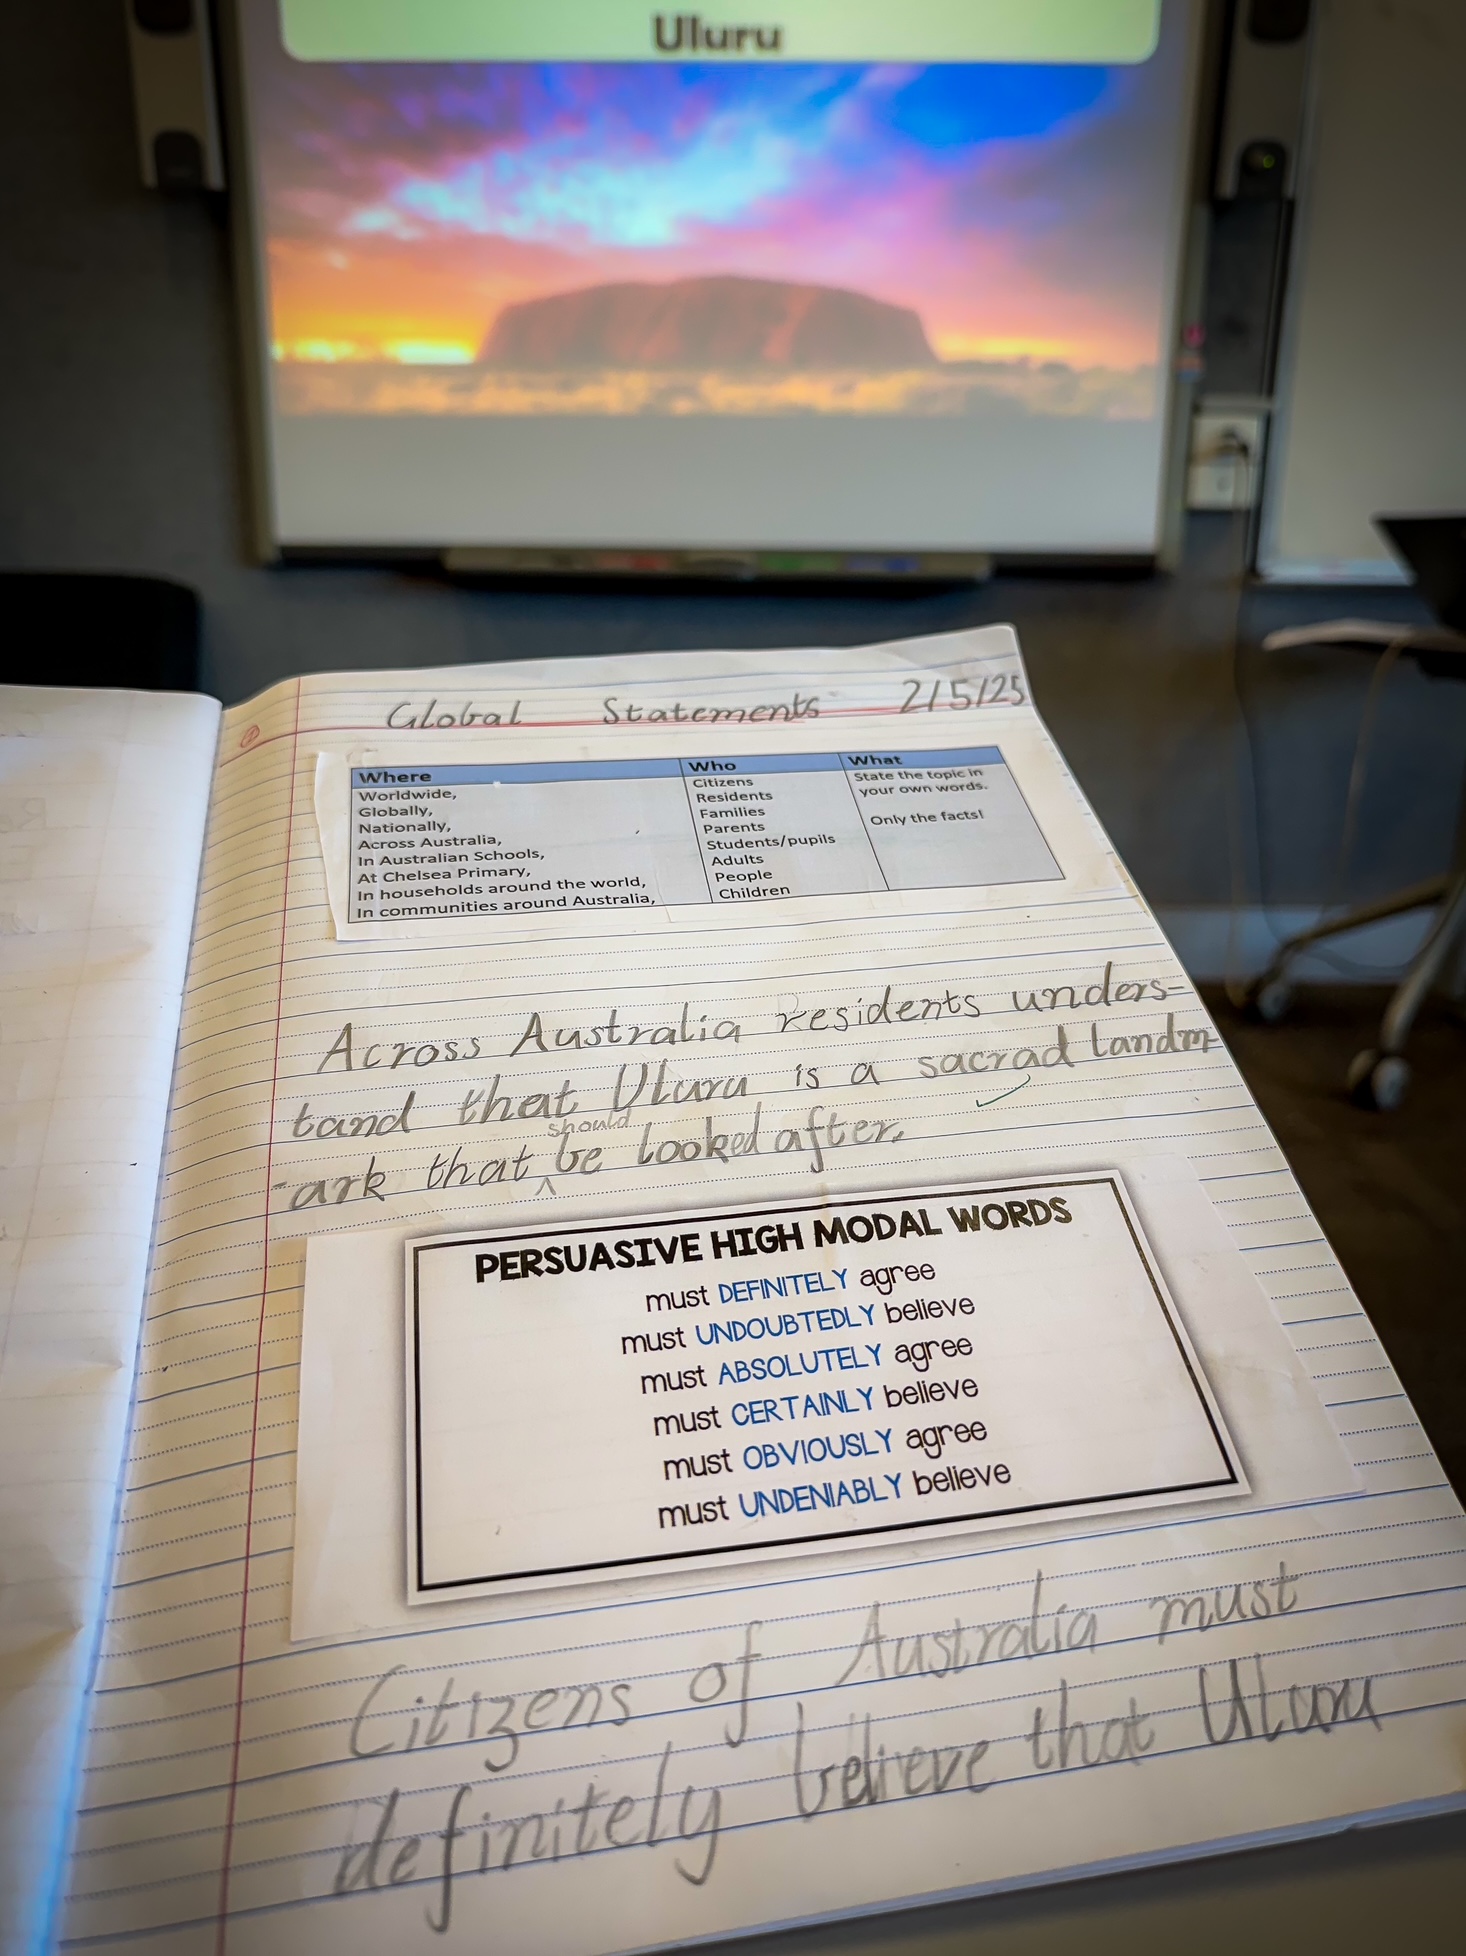 Uluru
Global Statements 2/5/25
Where Who What
Worldwide, Citizens State the topic in
Globally, Residents your own words.
Nationally, Families Only the facts!
Across Australia, Parents
In Australian Schools, Students/pupils
At Chelsea Primary, Adults
In households around the world, People
In communities around Australia, Children
Across Australia residents unders-
tand that Uluru is a sacrad landm-
should
-ark that be looked after.
PERSUASIVE HIGH MODAL WORDS
must DEFINITELY agree
must UNDOUBTEDLY believe
must ABSOLUTELY agree
must CERTAINLY believe
must OBVIOUSLY agree
must UNDENIABLY believe
Citizens of Australia must
definitely believe that Uluru